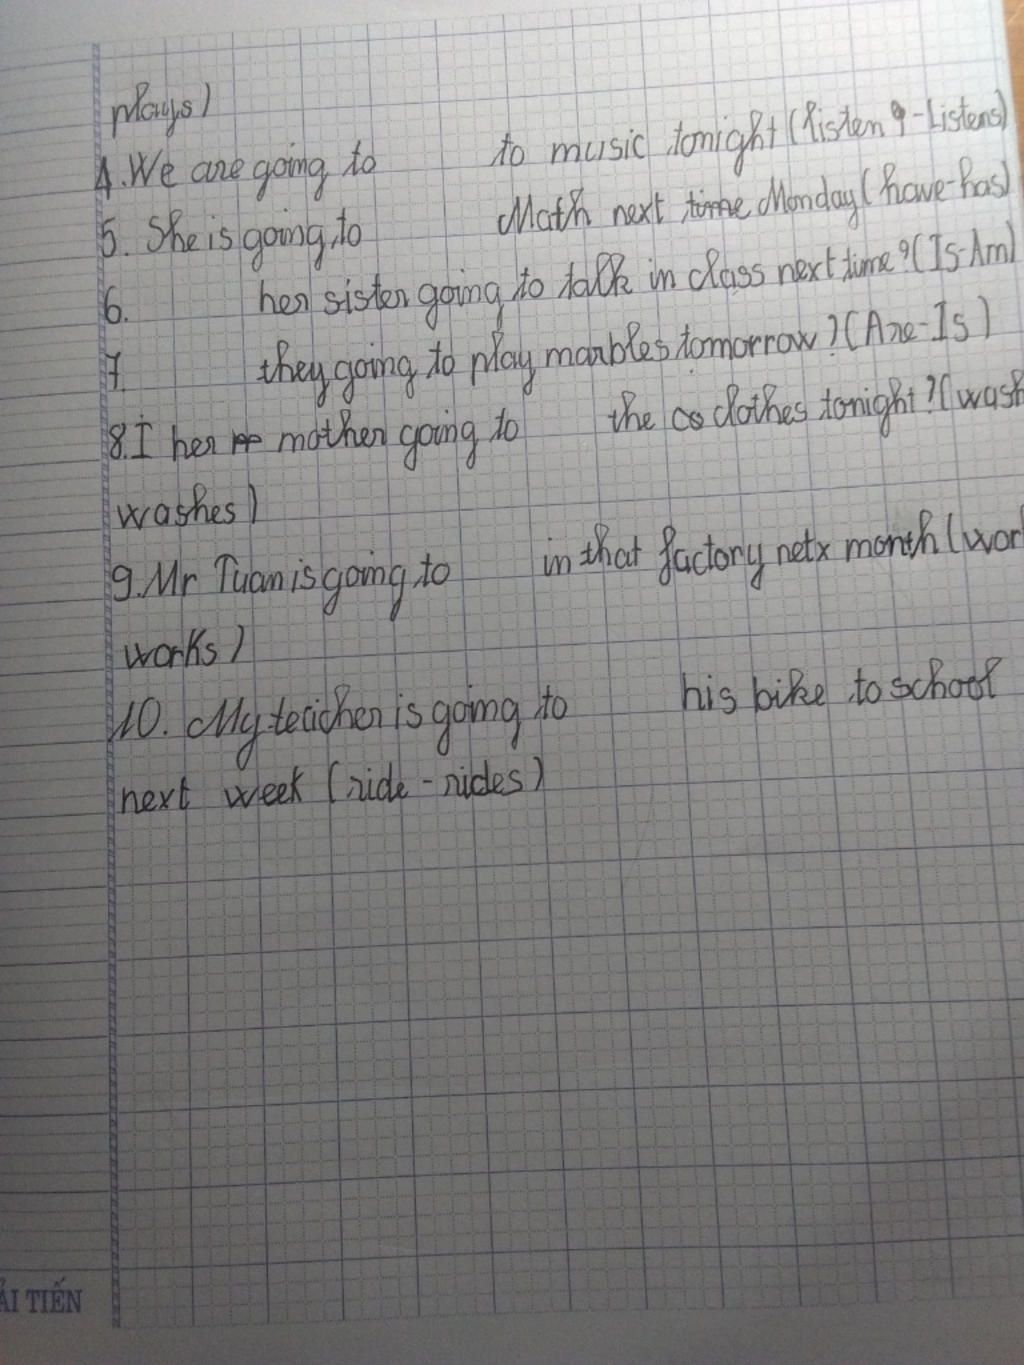 plays)
4. We are going to to music tonight (listen - Listens)
5. She is going to Math next time Monday (have-has)
6. her sister going to talk in class next time? (Is-Am)
7. they going to play marbles tomorrow? (Are-Is)
8. I her mother going to the clothes tonight? (wash
washes)
9. Mr Tuan is going to in that factory netx month (wor
works)
10. My teacher is going to his bike to school
next week (ride - rides)
ẢI TIẾN